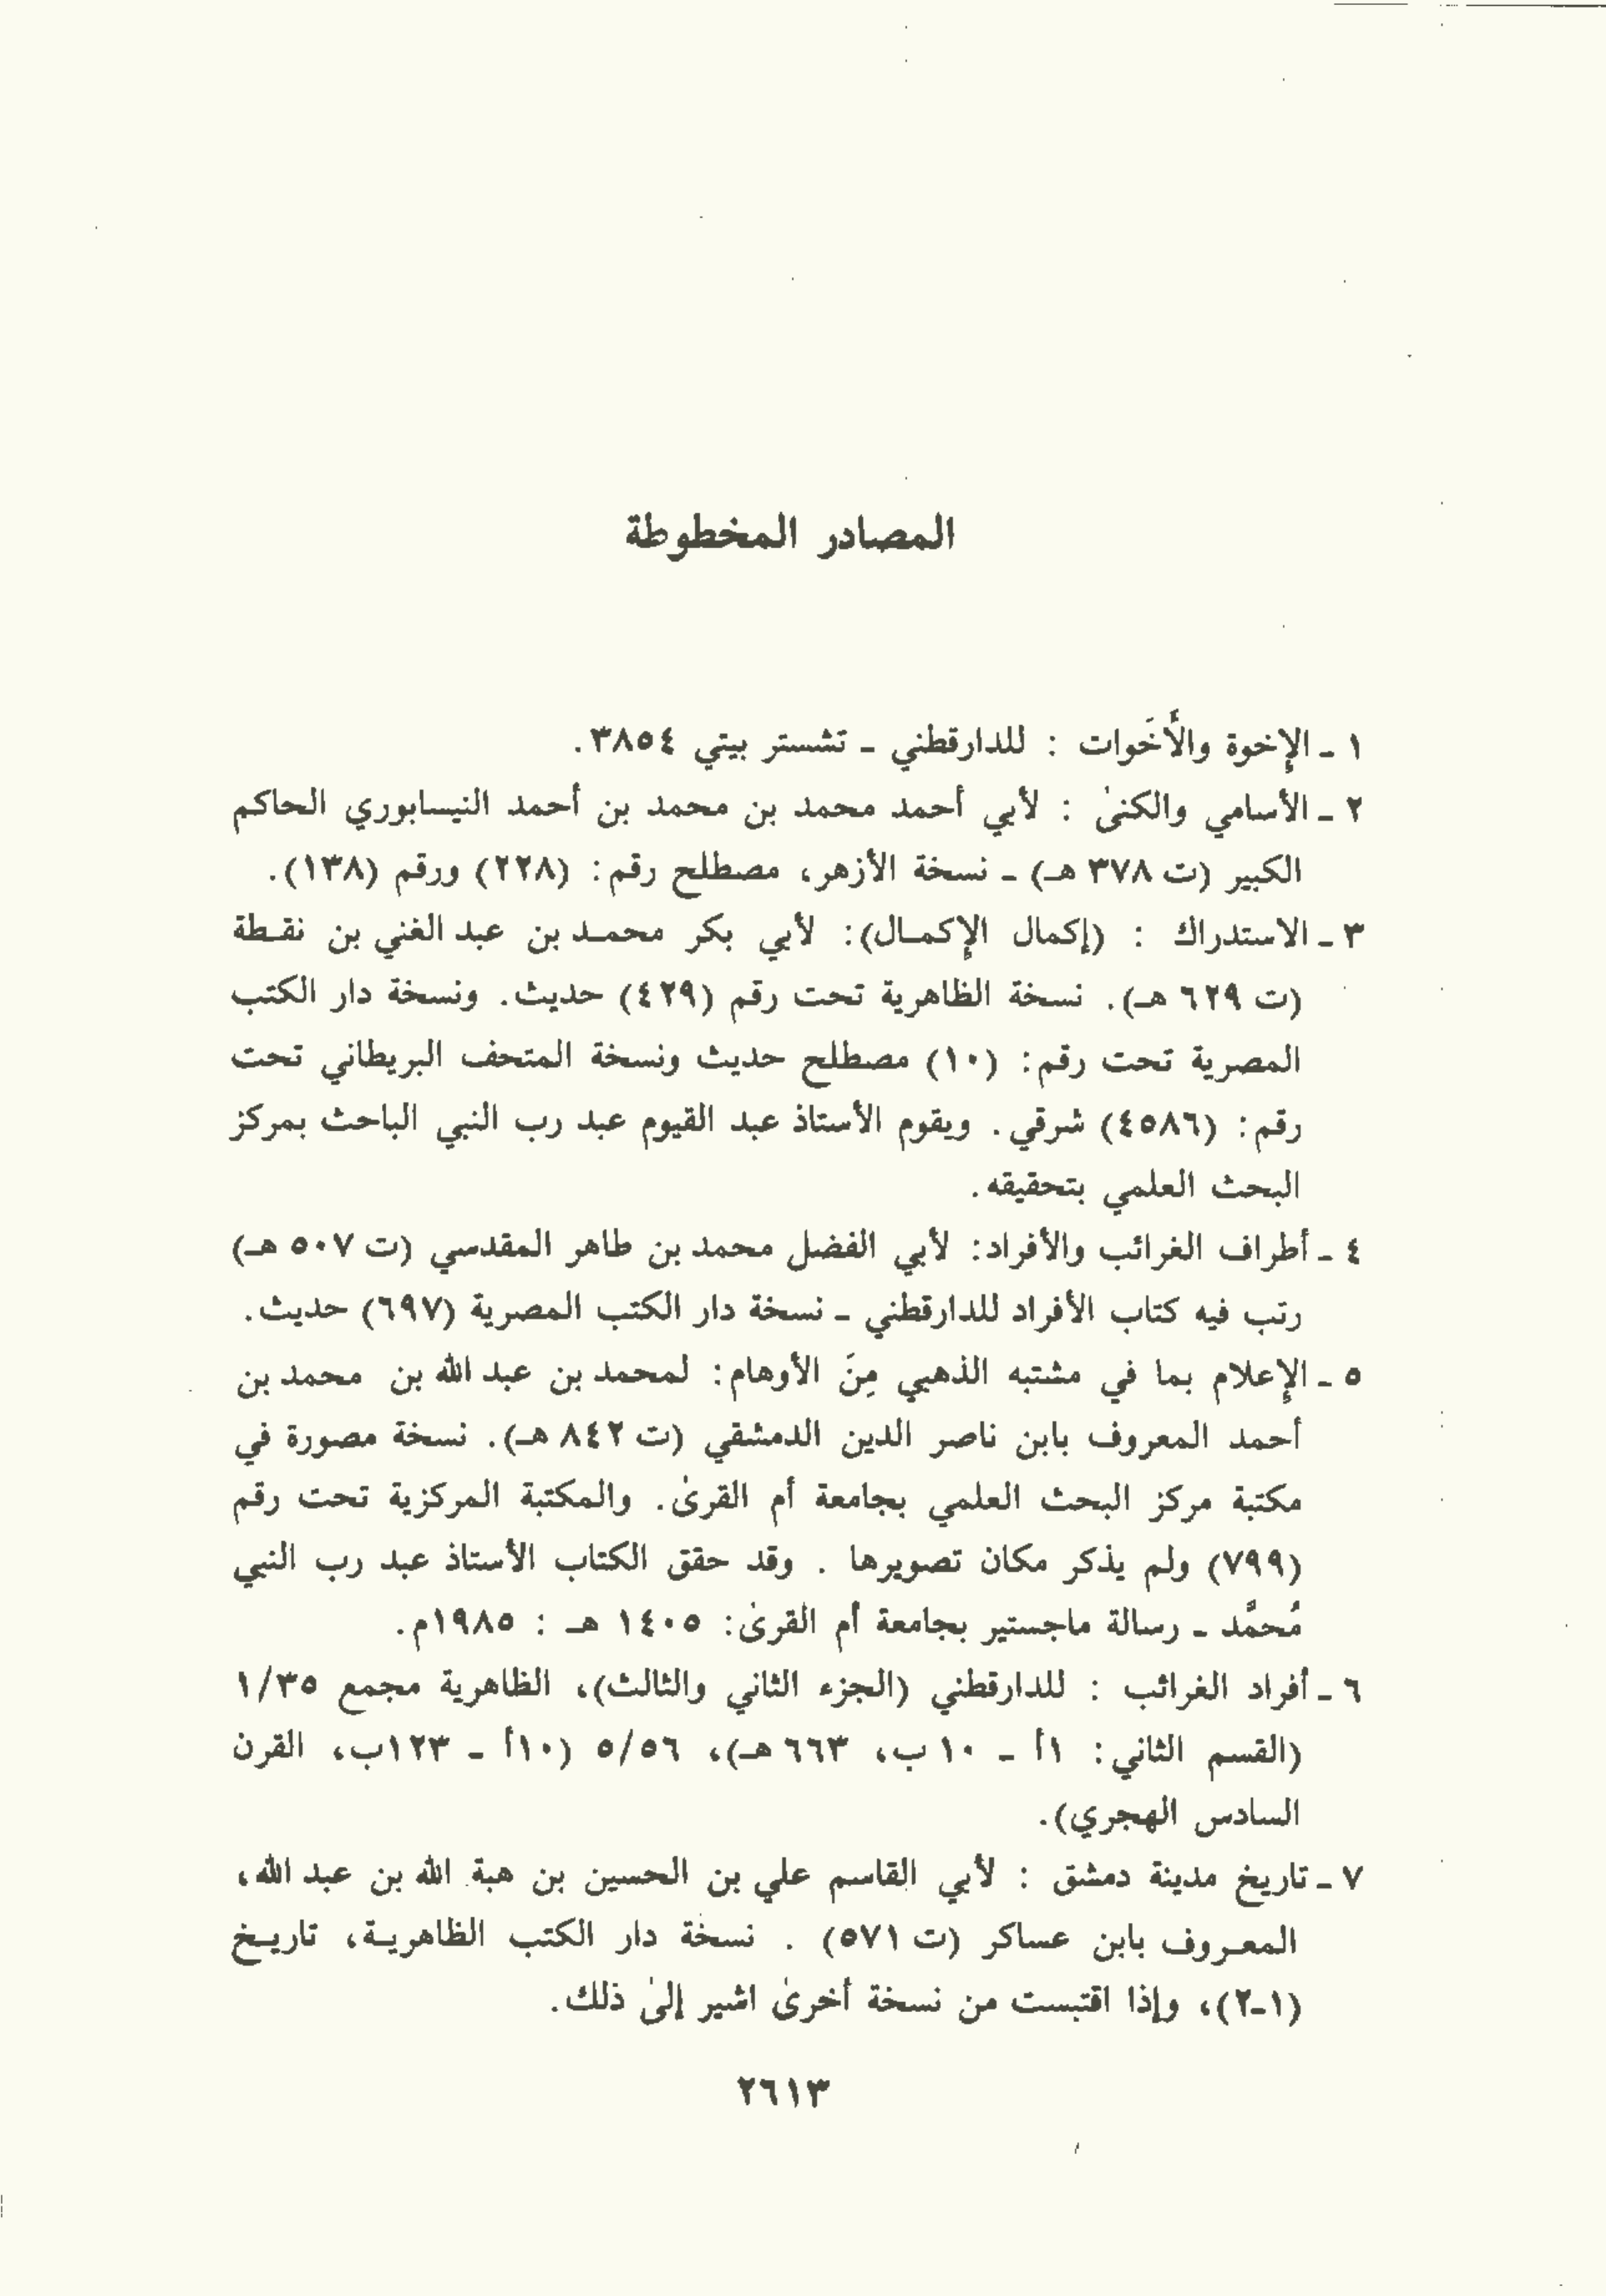 المصادر المخطوطة
١ ـ الإخوة والأَخَوات : للدارقطني ـ تشستر بيتي ٣٨٥٤.
٢ ـ الأسامي والكنىٰ : لأبي أحمد محمد بن محمد بن أحمد النيسابوري الحاكم
الكبير (ت ٣٧٨ هـ) ـ نسخة الأزهر، مصطلح رقم: (٢٢٨) ورقم (١٣٨).
٣ ـ الاستدراك : (إكمال الإكمـال): لأبي بكر محمـد بن عبد الغني بن نقـطة
(ت ٦٢٩ هـ). نسخة الظاهرية تحت رقم (٤٢٩) حديث. ونسخة دار الكتب
المصرية تحت رقم: (١٠) مصطلح حديث ونسخة المتحف البريطاني تحت
رقم: (٤٥٨٦) شرقي. ويقوم الأستاذ عبد القيوم عبد رب النبي الباحث بمركز
البحث العلمي بتحقيقه.
٤ ـ أطراف الغرائب والأفراد: لأبي الفضل محمد بن طاهر المقدسي (ت ٥٠٧ هـ)
رتب فيه كتاب الأفراد للدارقطني ـ نسخة دار الكتب المصرية (٦٩٧) حديث.
٥ ـ الإعلام بما في مشتبه الذهبي مِنَ الأوهام: لمحمد بن عبد الله بن محمد بن
أحمد المعروف بابن ناصر الدين الدمشقي (ت ٨٤٢ هـ). نسخة مصورة في
مكتبة مركز البحث العلمي بجامعة أم القرىٰ. والمكتبة المركزية تحت رقم
(٧٩٩) ولم يذكر مكان تصويرها . وقد حقق الكتاب الأستاذ عبد رب النبي
مُحمَّد ـ رسالة ماجستير بجامعة أم القرىٰ: ١٤٠٥ هـ : ١٩٨٥م.
٦ ـ أفراد الغرائب : للدارقطني (الجزء الثاني والثالث)، الظاهرية مجمع ١/٣٥
(القسم الثاني: ١أ ـ ١٠ ب، ٦٦٣ هـ)، ٥/٥٦ (١٠أ ـ ١٢٣ب، القرن
السادس الهجري).
٧ ـ تاريخ مدينة دمشق : لأبي القاسم علي بن الحسين بن هبة الله بن عبد الله،
المعـروف بابن عساكر (ت ٥٧١) . نسخة دار الكتب الظاهريـة، تاريـخ
(١-٢)، وإذا اقتبست من نسخة أخرىٰ اشير إلىٰ ذلك.
٢٦١٣